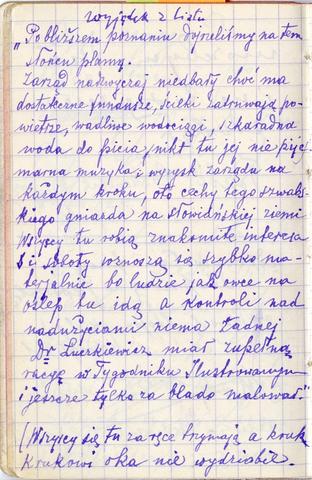 Wyjątek z Listu
"Po bliższem poznaniu dojrzeliśmy na tem
Słońcu plamę.
Zarząd nadzwyczaj niedbały choć ma
dostateczne fundusze, ścieki zatruwają po=
wietrze, wadliwe wodociągi, szkaradna
woda do picia, nikt tu jej nie pije,
marna muzyka, wyzysk zarządu na
każdym kroku, oto cechy tego szwab=
skiego gniazda na słowińskiej ziemi
Wszyscy tu robią znakomite interesa
i roboty wznoszą się szybko ma=
terjalnie bo ludzie jak owce na
oślep tu idą a kontroli nad
nadużyciami niema żadnej
Dr miał zupełną
racyę w Tygodniku Ilustrowanym
i jeszcze tylko za blado malował."
(Wszyscy się tu za ręce trzymają a kruk
krukowi oka nie wydziobie.